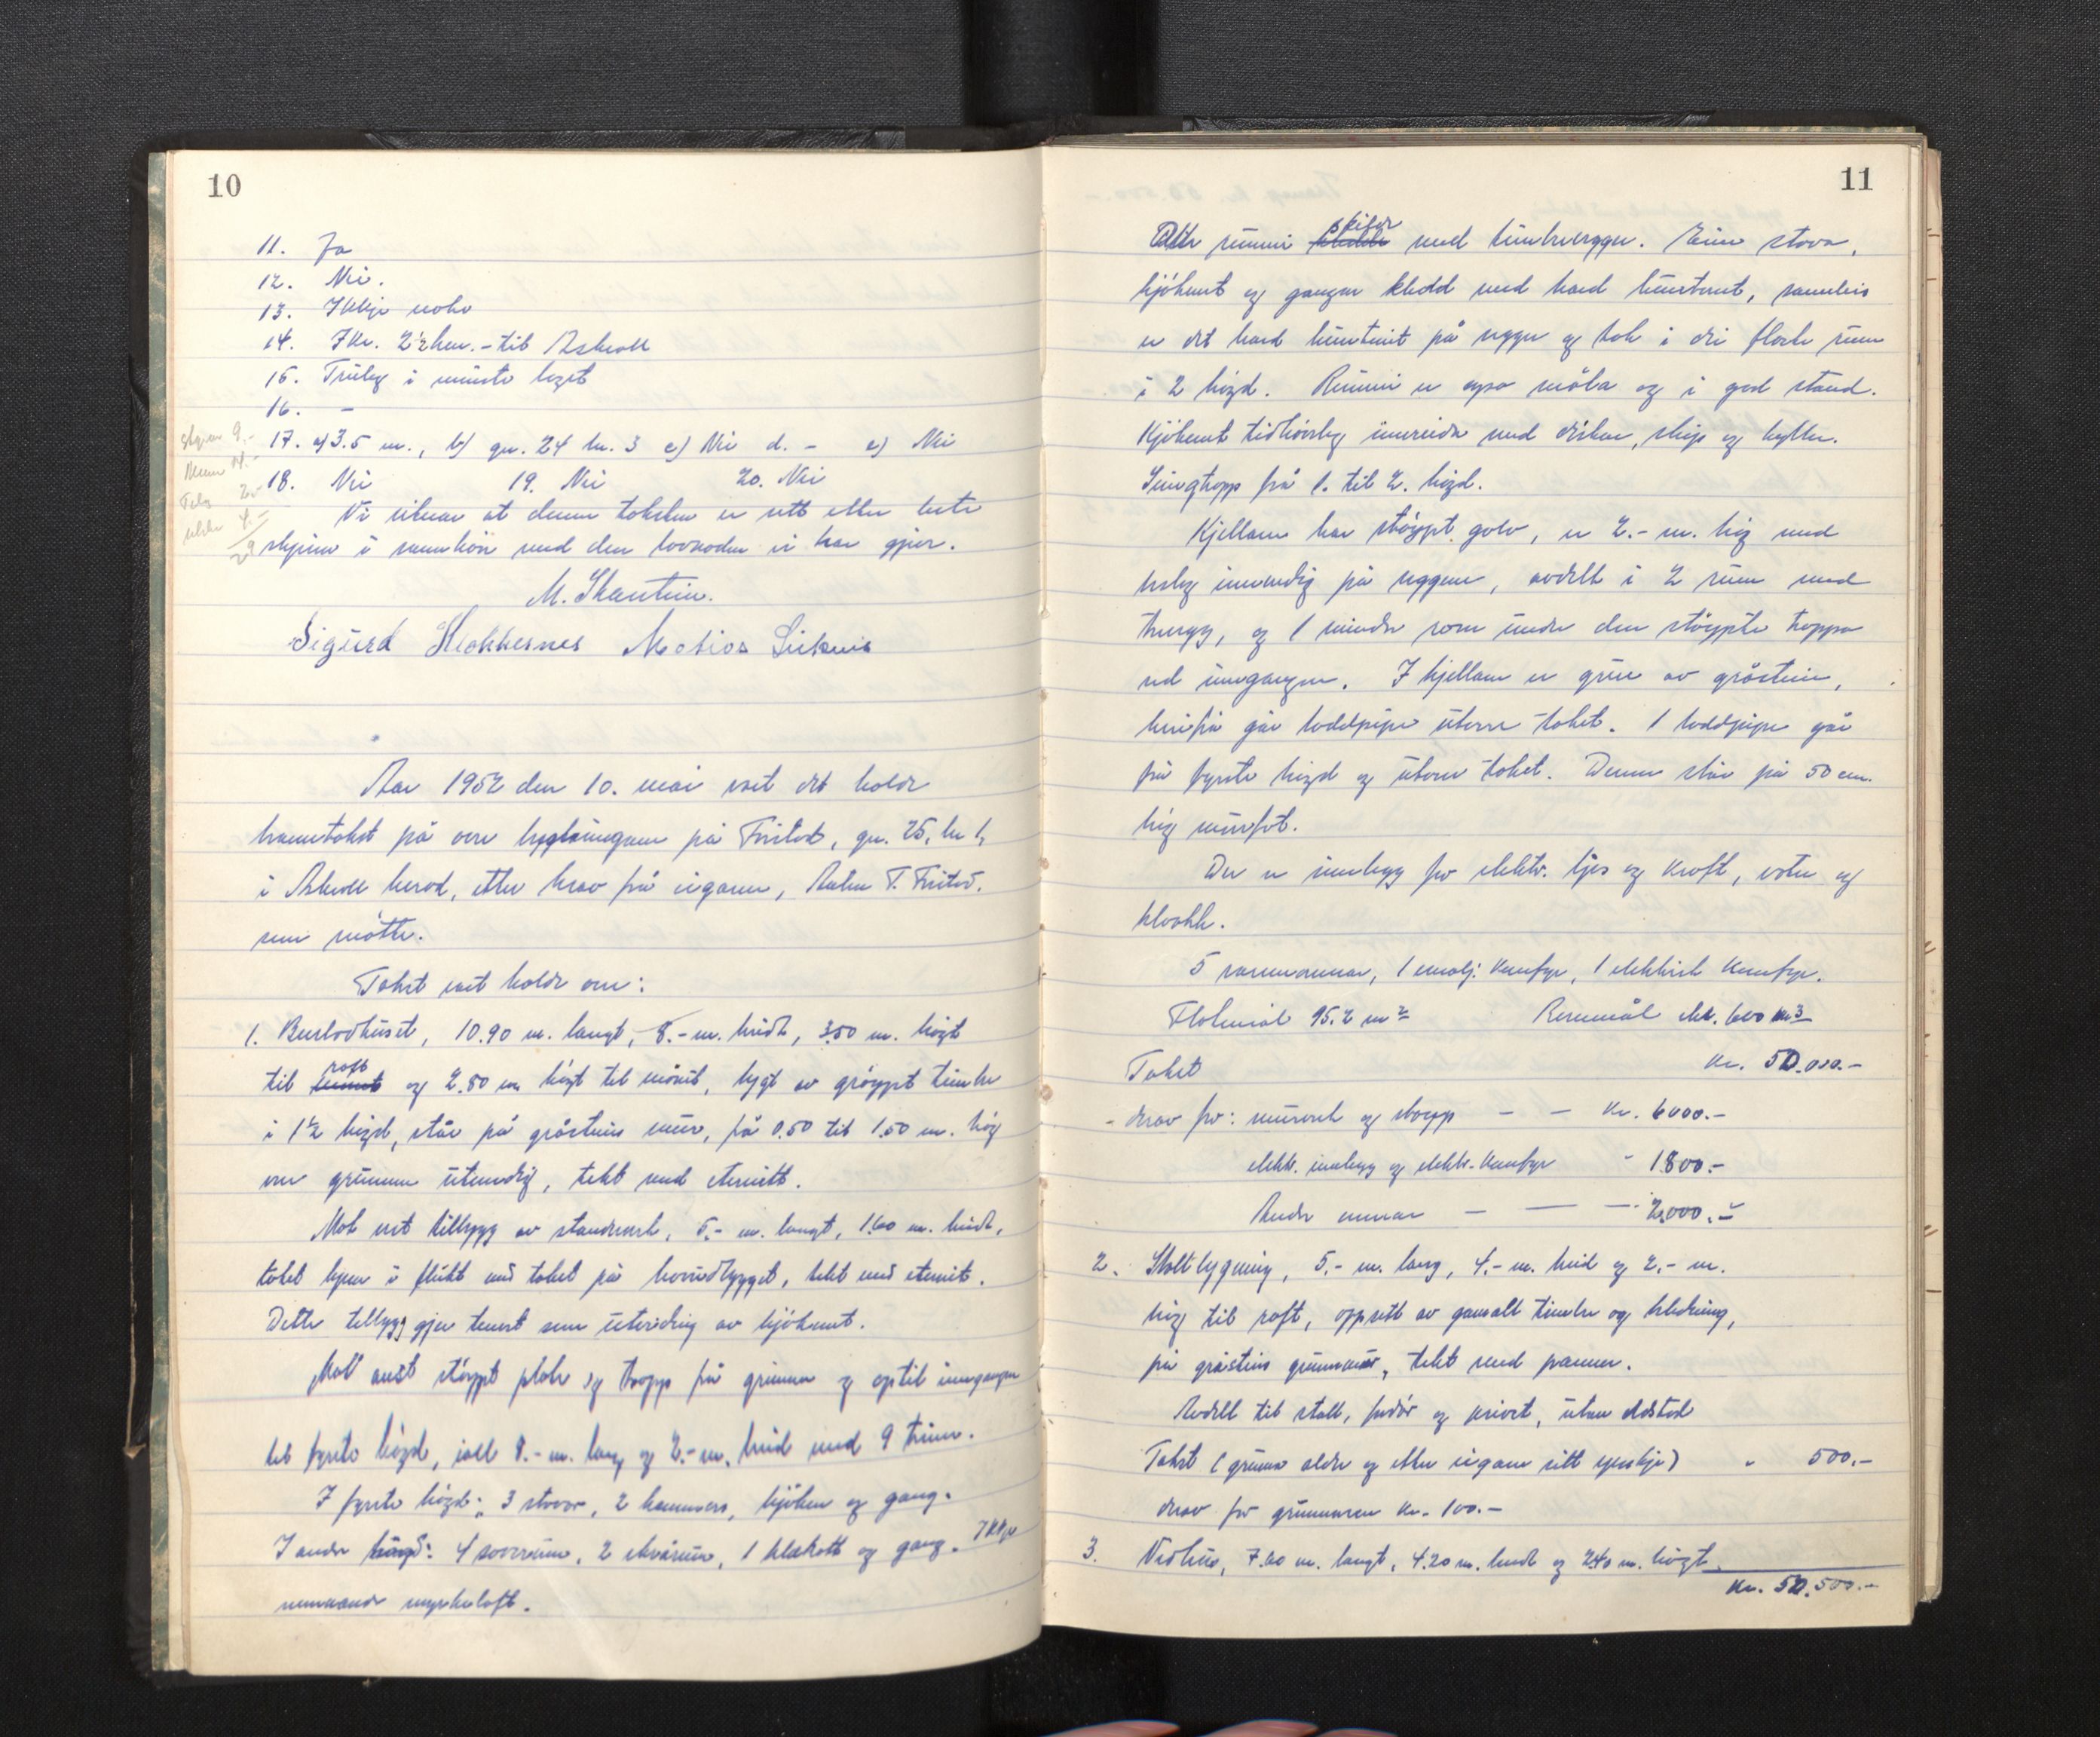 10
11. Ja
12. Nei.
13. Ikkje noko
14. Ikr. 2½ km. - til Askvoll
15. Truleg i minste laget
16. -
17. a) 3.5 m., b) gn. 24 br. 3 c) Nei d. - e) Nei
18. Nei 19. Nei 20. Nei
Vi vitnar at denne taksten er sett etter beste
skjønn i samhöve med den lovnaden vi har gjeve.
M. Skartun.
Sigurd Stokkesnes Matias
Aar 1952 den 10. mai vart det halde
branntakst på bygningane på Fristad, gn. 25, br 1,
i Askvoll herad, etter krav frå eigaren, T. Fristad.
som møtte.
Takst vart halde over:
1. Bustadhuset, 10.90 m. langt, 8.- m. bredt, 3.50 m. högt
til raft og 2.80 m högt til mönet, bygt av gröypt timber
i 1½ högd, står på gråsteins mur, frå 0.50 til 1.50 m. hög
over grunnen utvendig, tekt med eternitt.
Mot vest tilbygg av standverk, 5.- m. langt, 1.60 m. bredt,
taket ligg i flukt med taket på hovudbygget, tekt med eternit.
Dette tilbygg gjer tenest som utviding av kjökenet.
Mot aust stöypt plate og trapp frå grunnen og optil inngangen
til fyrste högd, i alt 8.- m. lang og 2.- m. breid med 9 trinn.
I fyrste högd: 3 stover, 2 kammers, kjöken og gang.
I andre högd: 4 soverum, 2 kvistrum, 1 klekott og gang. Ikkje
nemnande myrkeloft.
11
Alle rummi skilde med timbervegger. Eine stova,
kjökenet og gangen kledd med hard huntonit, sameleis
er det hard huntonit på vegger og tak i dei fleste rum
i 2 högd. Rummi er måla og i god stand.
Kjökenet tidhöveleg innreidd med disker, skåp og hyller.
Svingtrapp frå 1. til 2. högd.
Kjellaren har stöypt golv, er 2.- m. hög med
innvendig på veggene, avdelt i 2 rum med
trevegg, og 1 mindre rom under den stöypte trappa
ved inngangen. I kjellaren er grue av gråstein,
herifrå går teglpipe utover taket. 1 teglpipe går
frå fyrste högd og utover taket. Denne står på 50 cm.
hög murfot.
Der er innlegg for elektr. ljos og kraft, vatn og
kloakk.
5 varmeomnar, 1 emalj. komfyr, 1 elektrisk komfyr.
Flatemål 95.2 m² Romemål 600 m3
Takst Kr. 50.000.-
- derav for: murverk og trapp - - Kr. 6000.-
elektr. innlegg og elektr. komfyr " 1800.-
Andre omnar - - - 2.000.-
2. Stallbygning, 5.- m. lang, 4.- m. breid og 2.- m.
hög til raft, oppsett av gamalt timber og kledning,
på gråsteins grunnmur, tekt med panner.
Avdelt til stall, fodör og privet, utan eldstad
Takst (grunna alder og etter eigaren sitt ynskje) " 500.-
derav for grunnmuren kr. 100.-
3. Vedhus, 7.60 m. langt, 4.20 m. bredt og 2.40 m. högt
Kr. 50.500.-